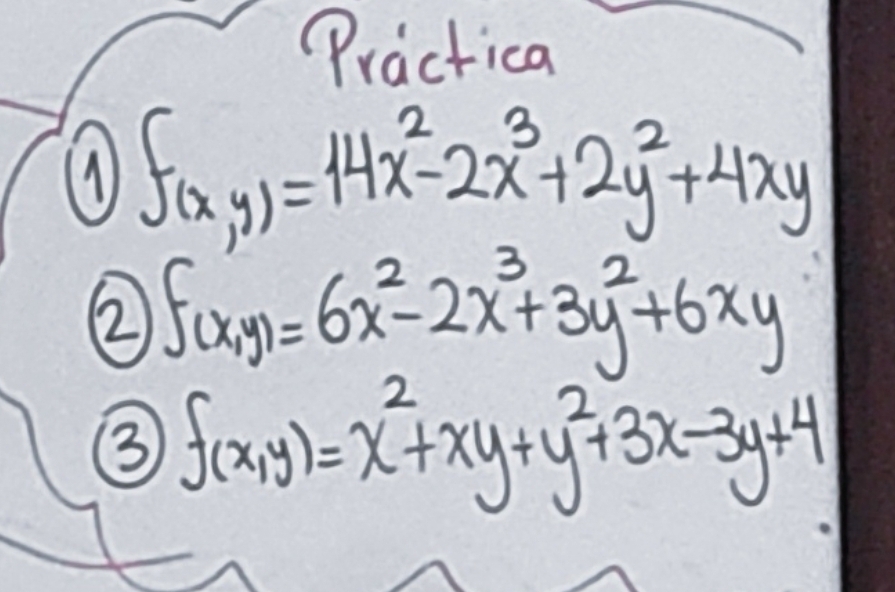 Práctica
① f(x,y)=14x²-2x³+2y²+4xy
② f(x,y)=6x²-2x³+3y²+6xy
③ f(x,y)=x²+xy+y²+3x-3y+4